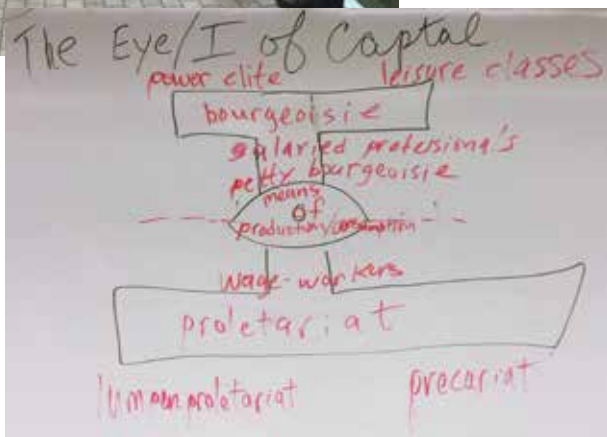 The Eye/I of Captal
power elite leisure classes
bourgeoisie
salaried professional's
petty bourgeoisie
means
of
production/consumption
wage-workers
proletariat
lumpenproletariat precariat